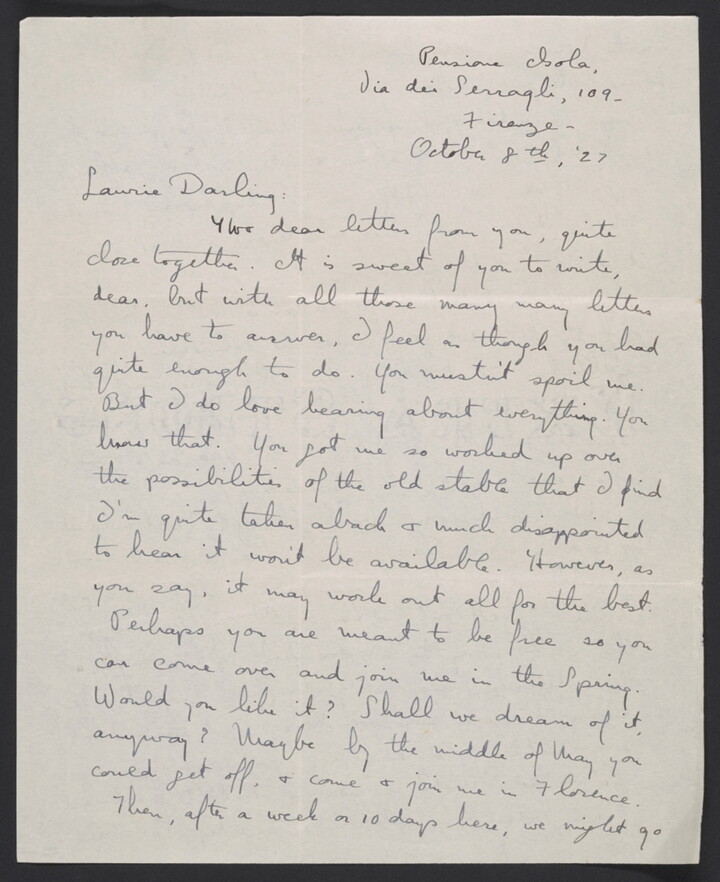 Pensione Isola,
Via dei Serragli, 109-
Firenze -
October 8th, '27
Laurie Darling:
Two dear letters from you, quite
close together. It is sweet of you to write,
dear, but with all those many many letters
you have to answer, I feel as though you had
quite enough to do. You mustn't spoil me.
But I do love hearing about everything. You
know that. You got me so worked up over
the possibilities of the old stable that I find
I'm quite taken aback & much disappointed
to hear it won't be available. However, as
you say, it may work out all for the best.
Perhaps you are meant to be free so you
can come over and join me in the Spring.
Would you like it? Shall we dream of it,
anyway? Maybe by the middle of May you
could get off, & come & join me in Florence.
Then, after a week or 10 days here, we might go